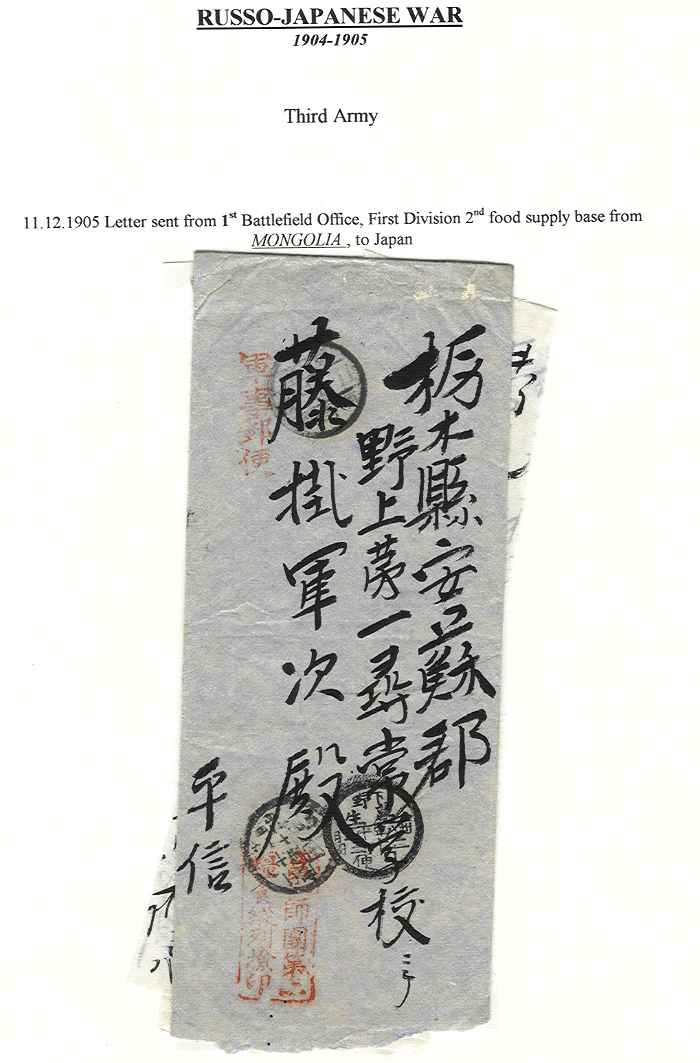 RUSSO-JAPANESE WAR
1904-1905
Third Army
11.12.1905 Letter sent from 1st Battlefield Office, First Division 2nd food supply base from
MONGOLIA , to Japan
栃木縣安蘇郡
野上第一尋常学校ニテ
藤掛軍次殿
平信
軍事郵便
師團第二